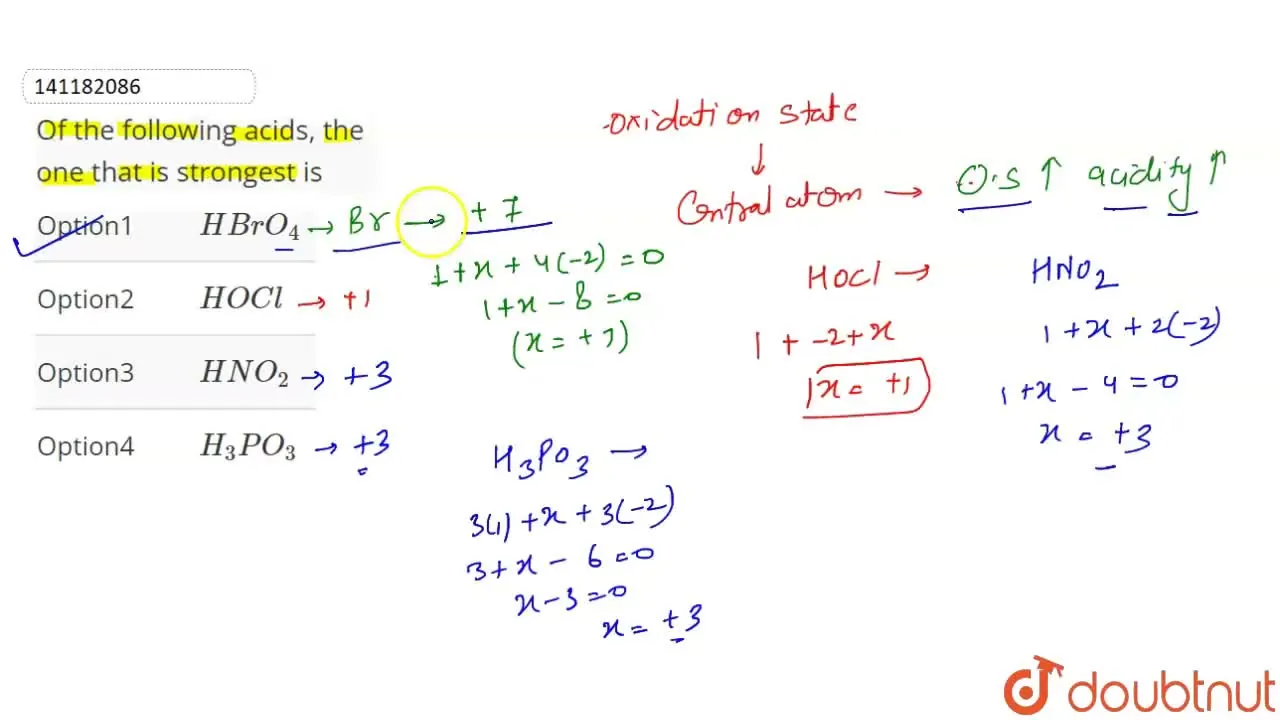 141182086
Of the following acids, the
one that is strongest is
Option1 HBrO₄ → Br → +7
Option2 HOCl → +1
Option3 HNO₂ → +3
Option4 H₃PO₃ → +3
1+x+4(-2)=0
1+x-8=0
(x=+7)
oxidation state
↓
Central atom → O.S ↑ acidity ↑
HOCl →
1 + -2+x
x = +1
HNO₂
1+x+2(-2)
1+x-4=0
x = +3
H₃PO₃ →
3(1)+x+3(-2)
3+x-6=0
x-3=0
x=+3
doubtnut